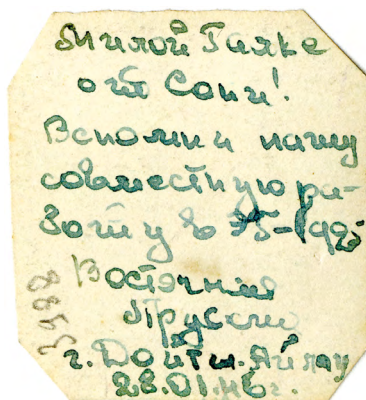 Милой Гальке
от Сони!
Вспомни нашу
совместную ра-
боту в 75-
Восточная
Пруссия
г. Дойтш. Айлау
28.01.46г.
3988